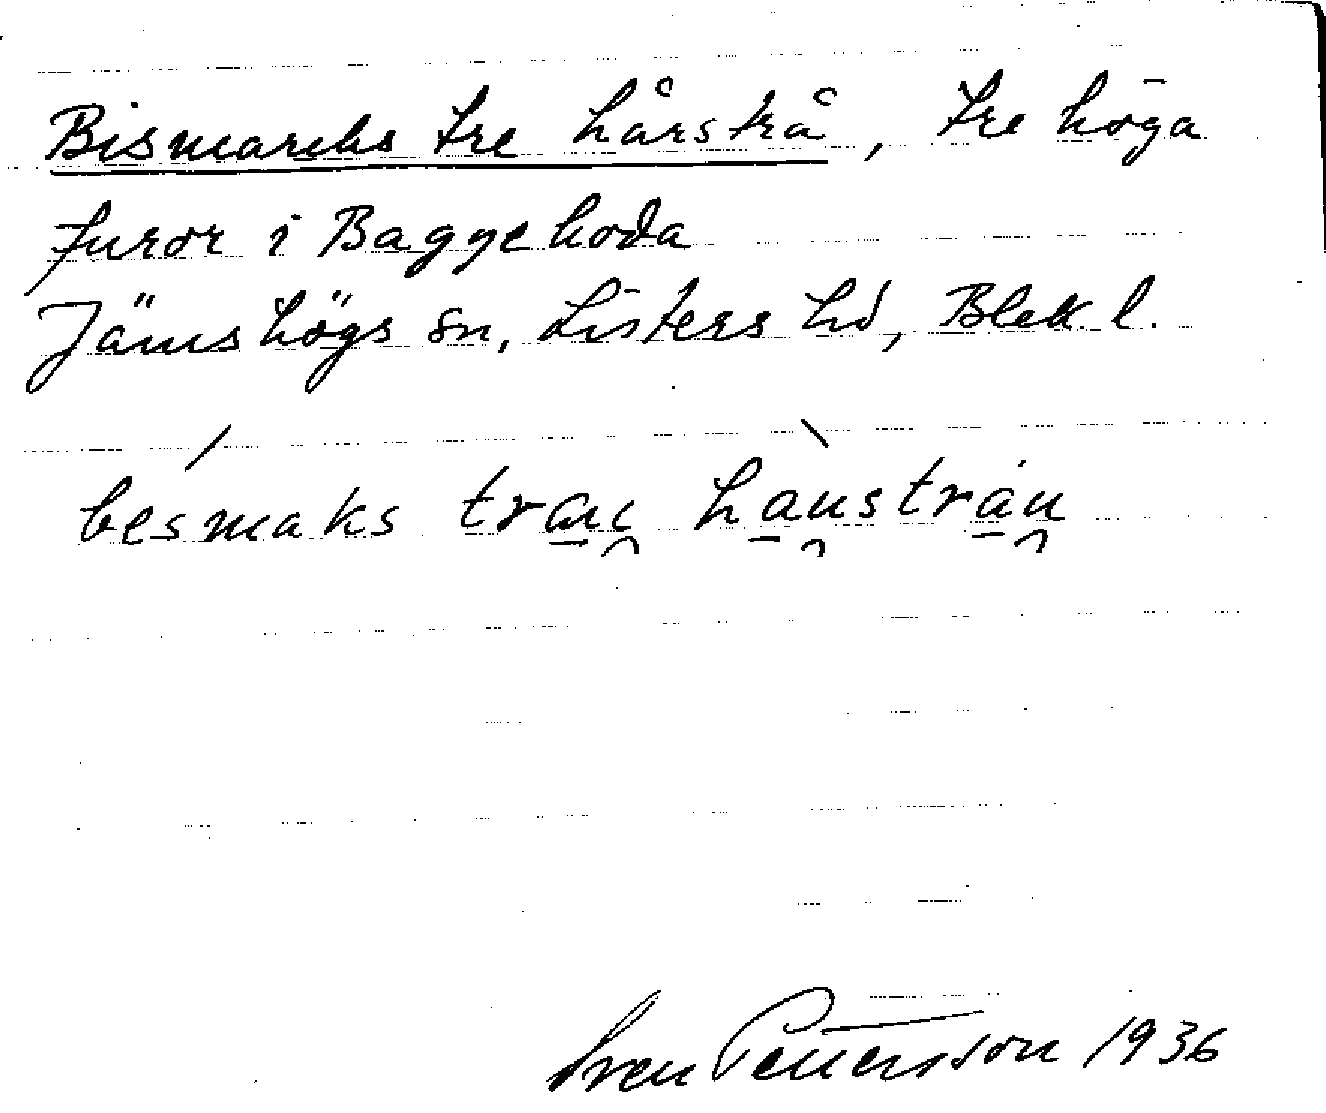 Bismarcks tre hårstrå, tre höga
furor i Baggeboda
Jämshögs sn, Listers hd, Blek. l.
besmaks træi̯ ha̱u̯strá̱u̯
Sven Pettersson 1936